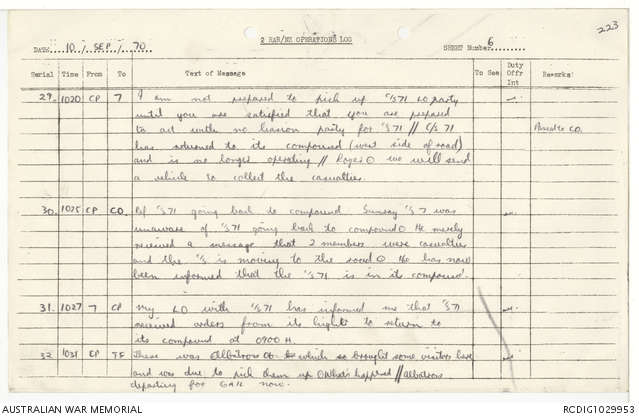 223
2 RAR/NZ OPERATIONS LOG
DATE: 10 / SEP / 70 SHEET Number 6
Serial Time From To Text of Message To See Duty Offr Int Remarks
29. 1020 CP 7 I am not prepared to pick up C/S 71 LO party
until you are satisfied that you are prepared
to act with no liaison party for C/S 71 // C/S 71
has returned to its compound (west side of road) Passed to CO.
and is no longer operating // Roger O we will send
a vehicle to collect the casualties.
30. 1025 CP CO. Ref C/S 71 going back to compound. Sunray C/S 7 was
unaware of C/S 71 going back to compound O He merely
received a message that 2 members were casualties
and the C/S is moving to the road O He has now
been informed that the C/S 71 is in its compound.
31. 1027 7 CP My LO with C/S 71 has informed me that C/S 71
received orders from its higher to return to
its compound at 0900 H.
32. 1031 CP TF There was Albatross which brought some visitors here
and was due to pick them up O What's happened // Albatross
departing for now.
AUSTRALIAN WAR MEMORIAL RCDIG1029953